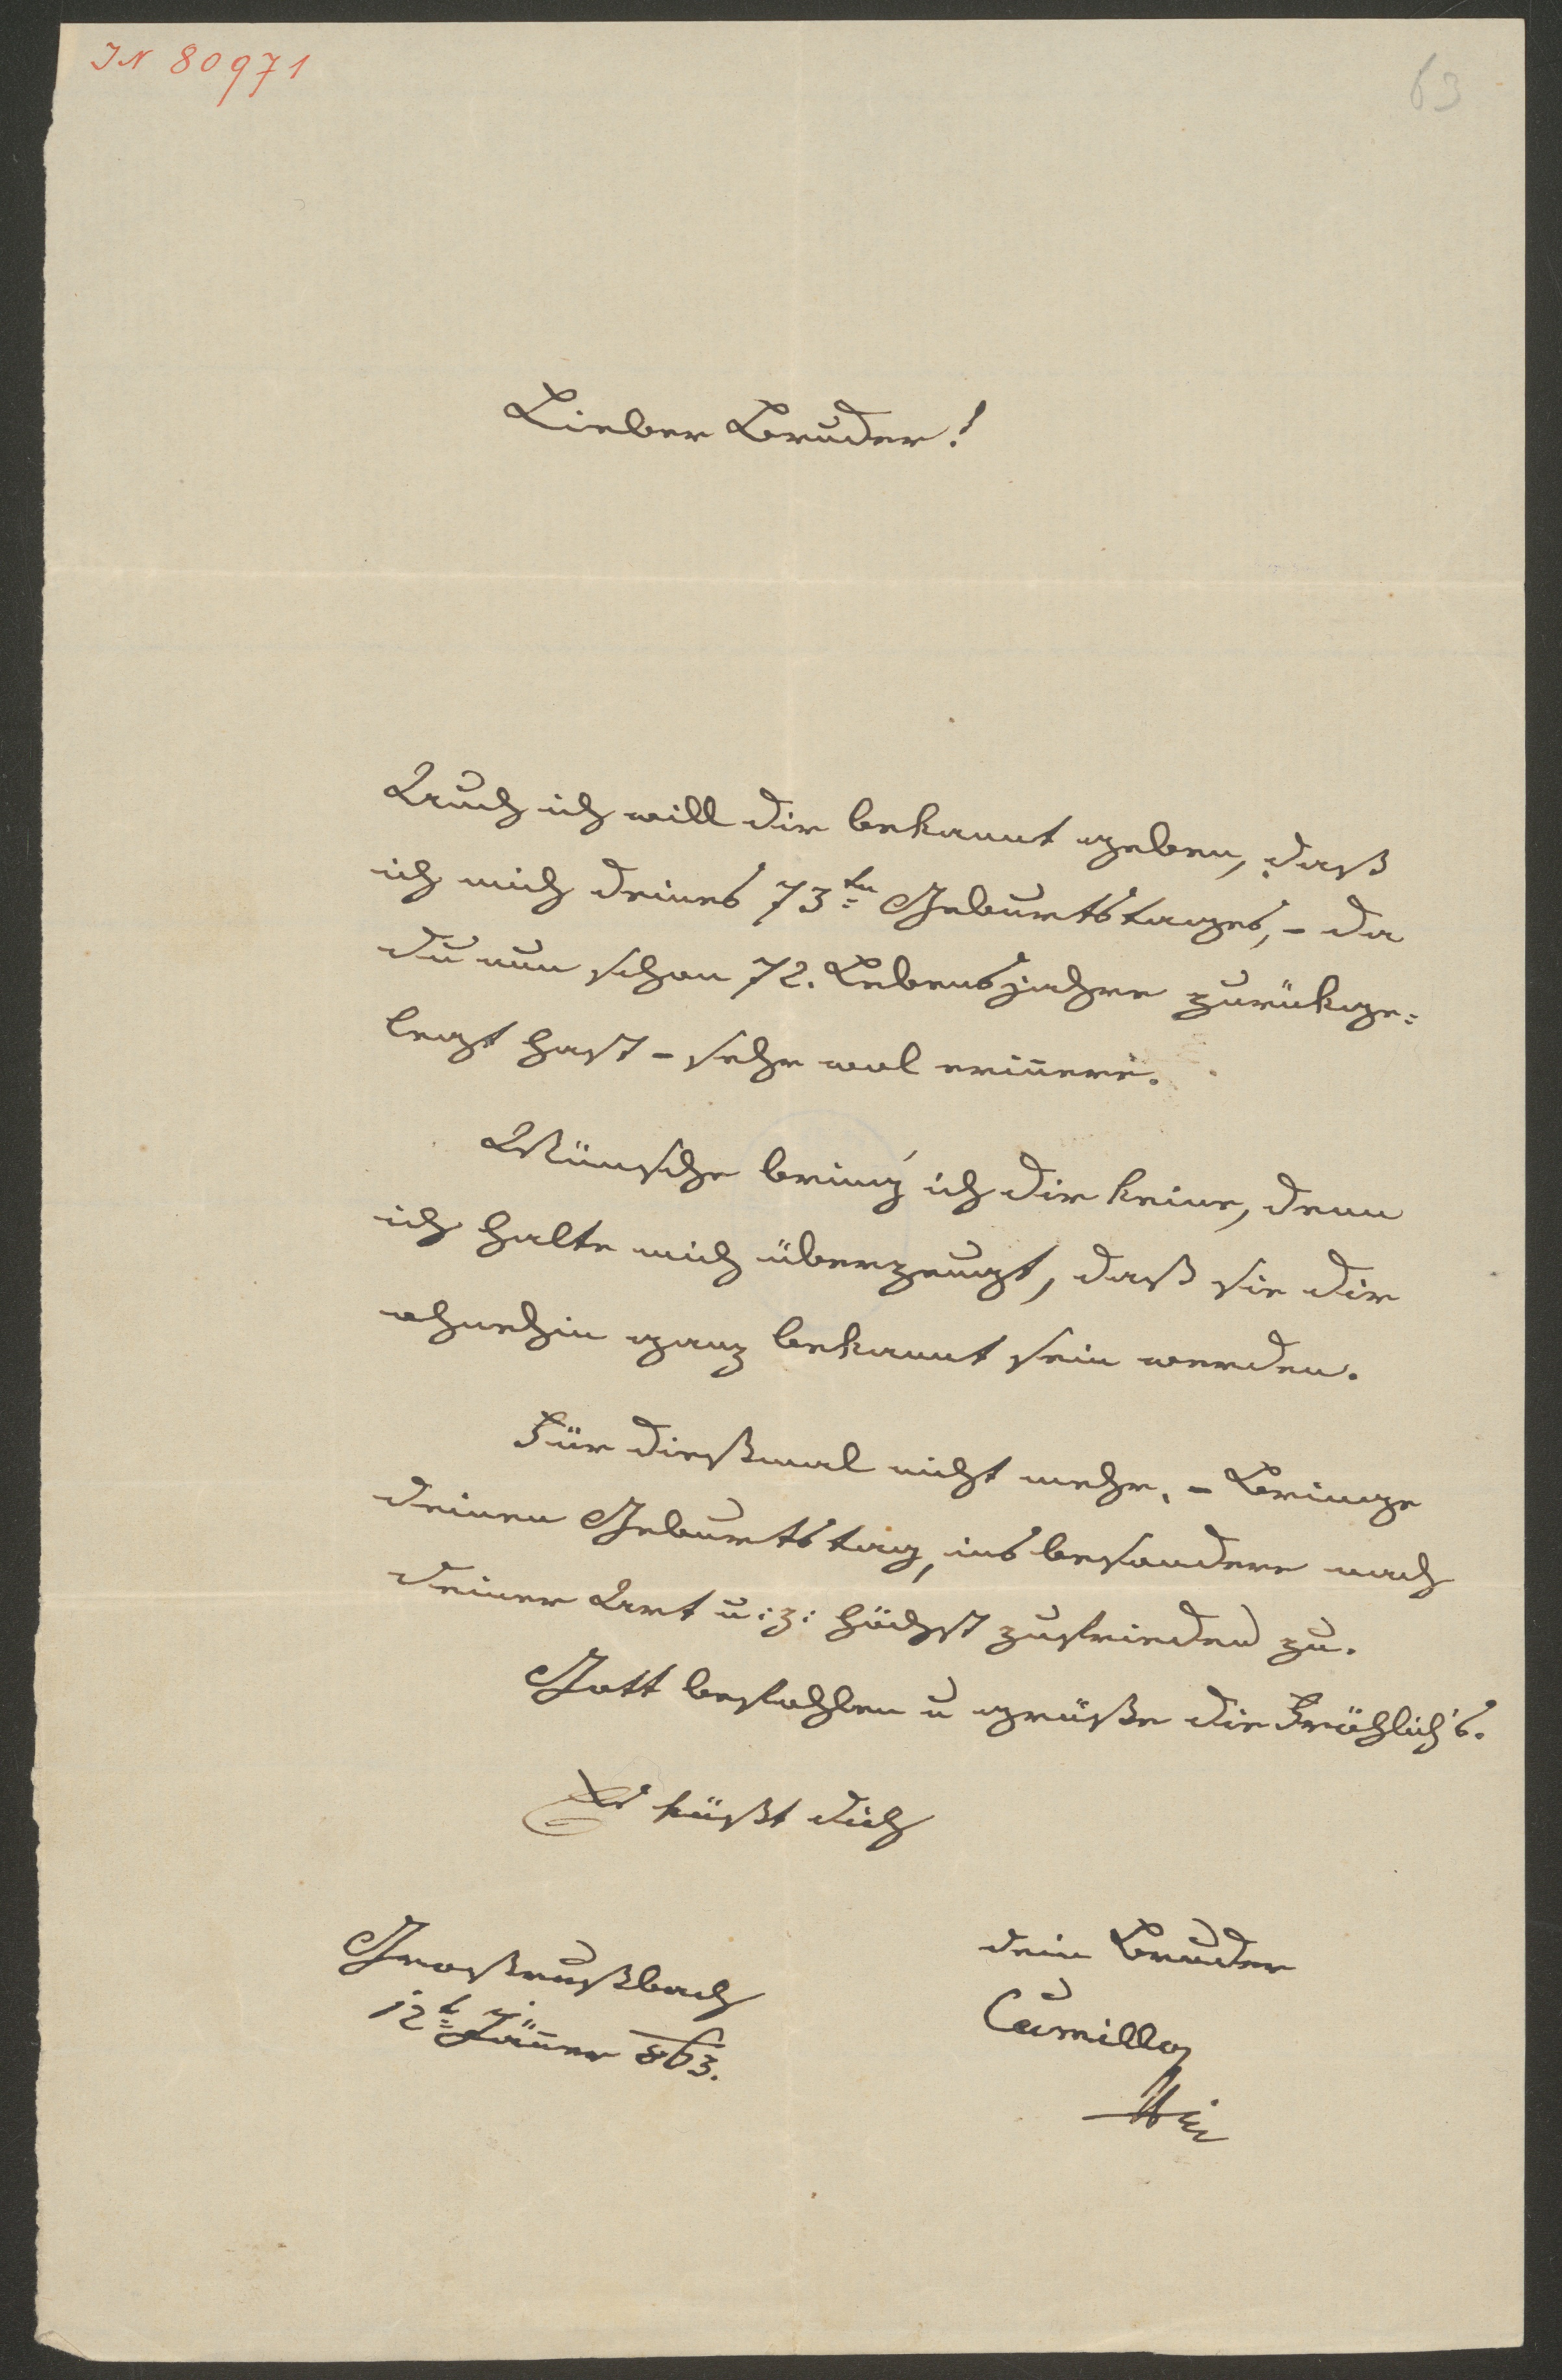 IN 80971
63
Lieber Bruder!
Auch ich will dir bekannt geben, daß
ich mich deines 73ten Geburtstages, - da
du nun schon 72. Lebensjahre zurükge=
legt hast - sehr wol erin̄ere.
Wünsche bring' ich dir keine, denn
ich halte mich überzeugt, daß sie dir
ohnehin ganz bekannt sein werden.
Für dießmal nicht mehr. - Bringe
deinen Geburtstag, insbesondere nach
deiner Art u: z: höchst zufrieden zu.
Gott befohlen u grüße die Fröhlich's.
Es küßt dich
Großrußbach
12t Jän̄er 863.
dein Bruder
Camillo